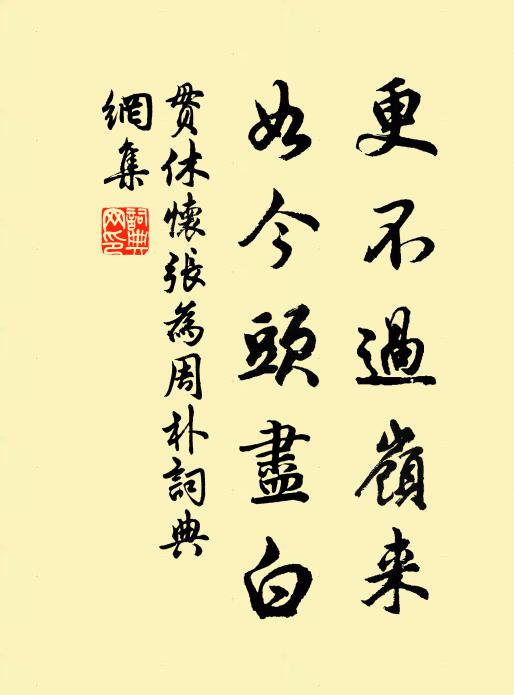 更不過嶺来
如今頭盡白
貫休懷張為周朴詞典
網集
詞典網印